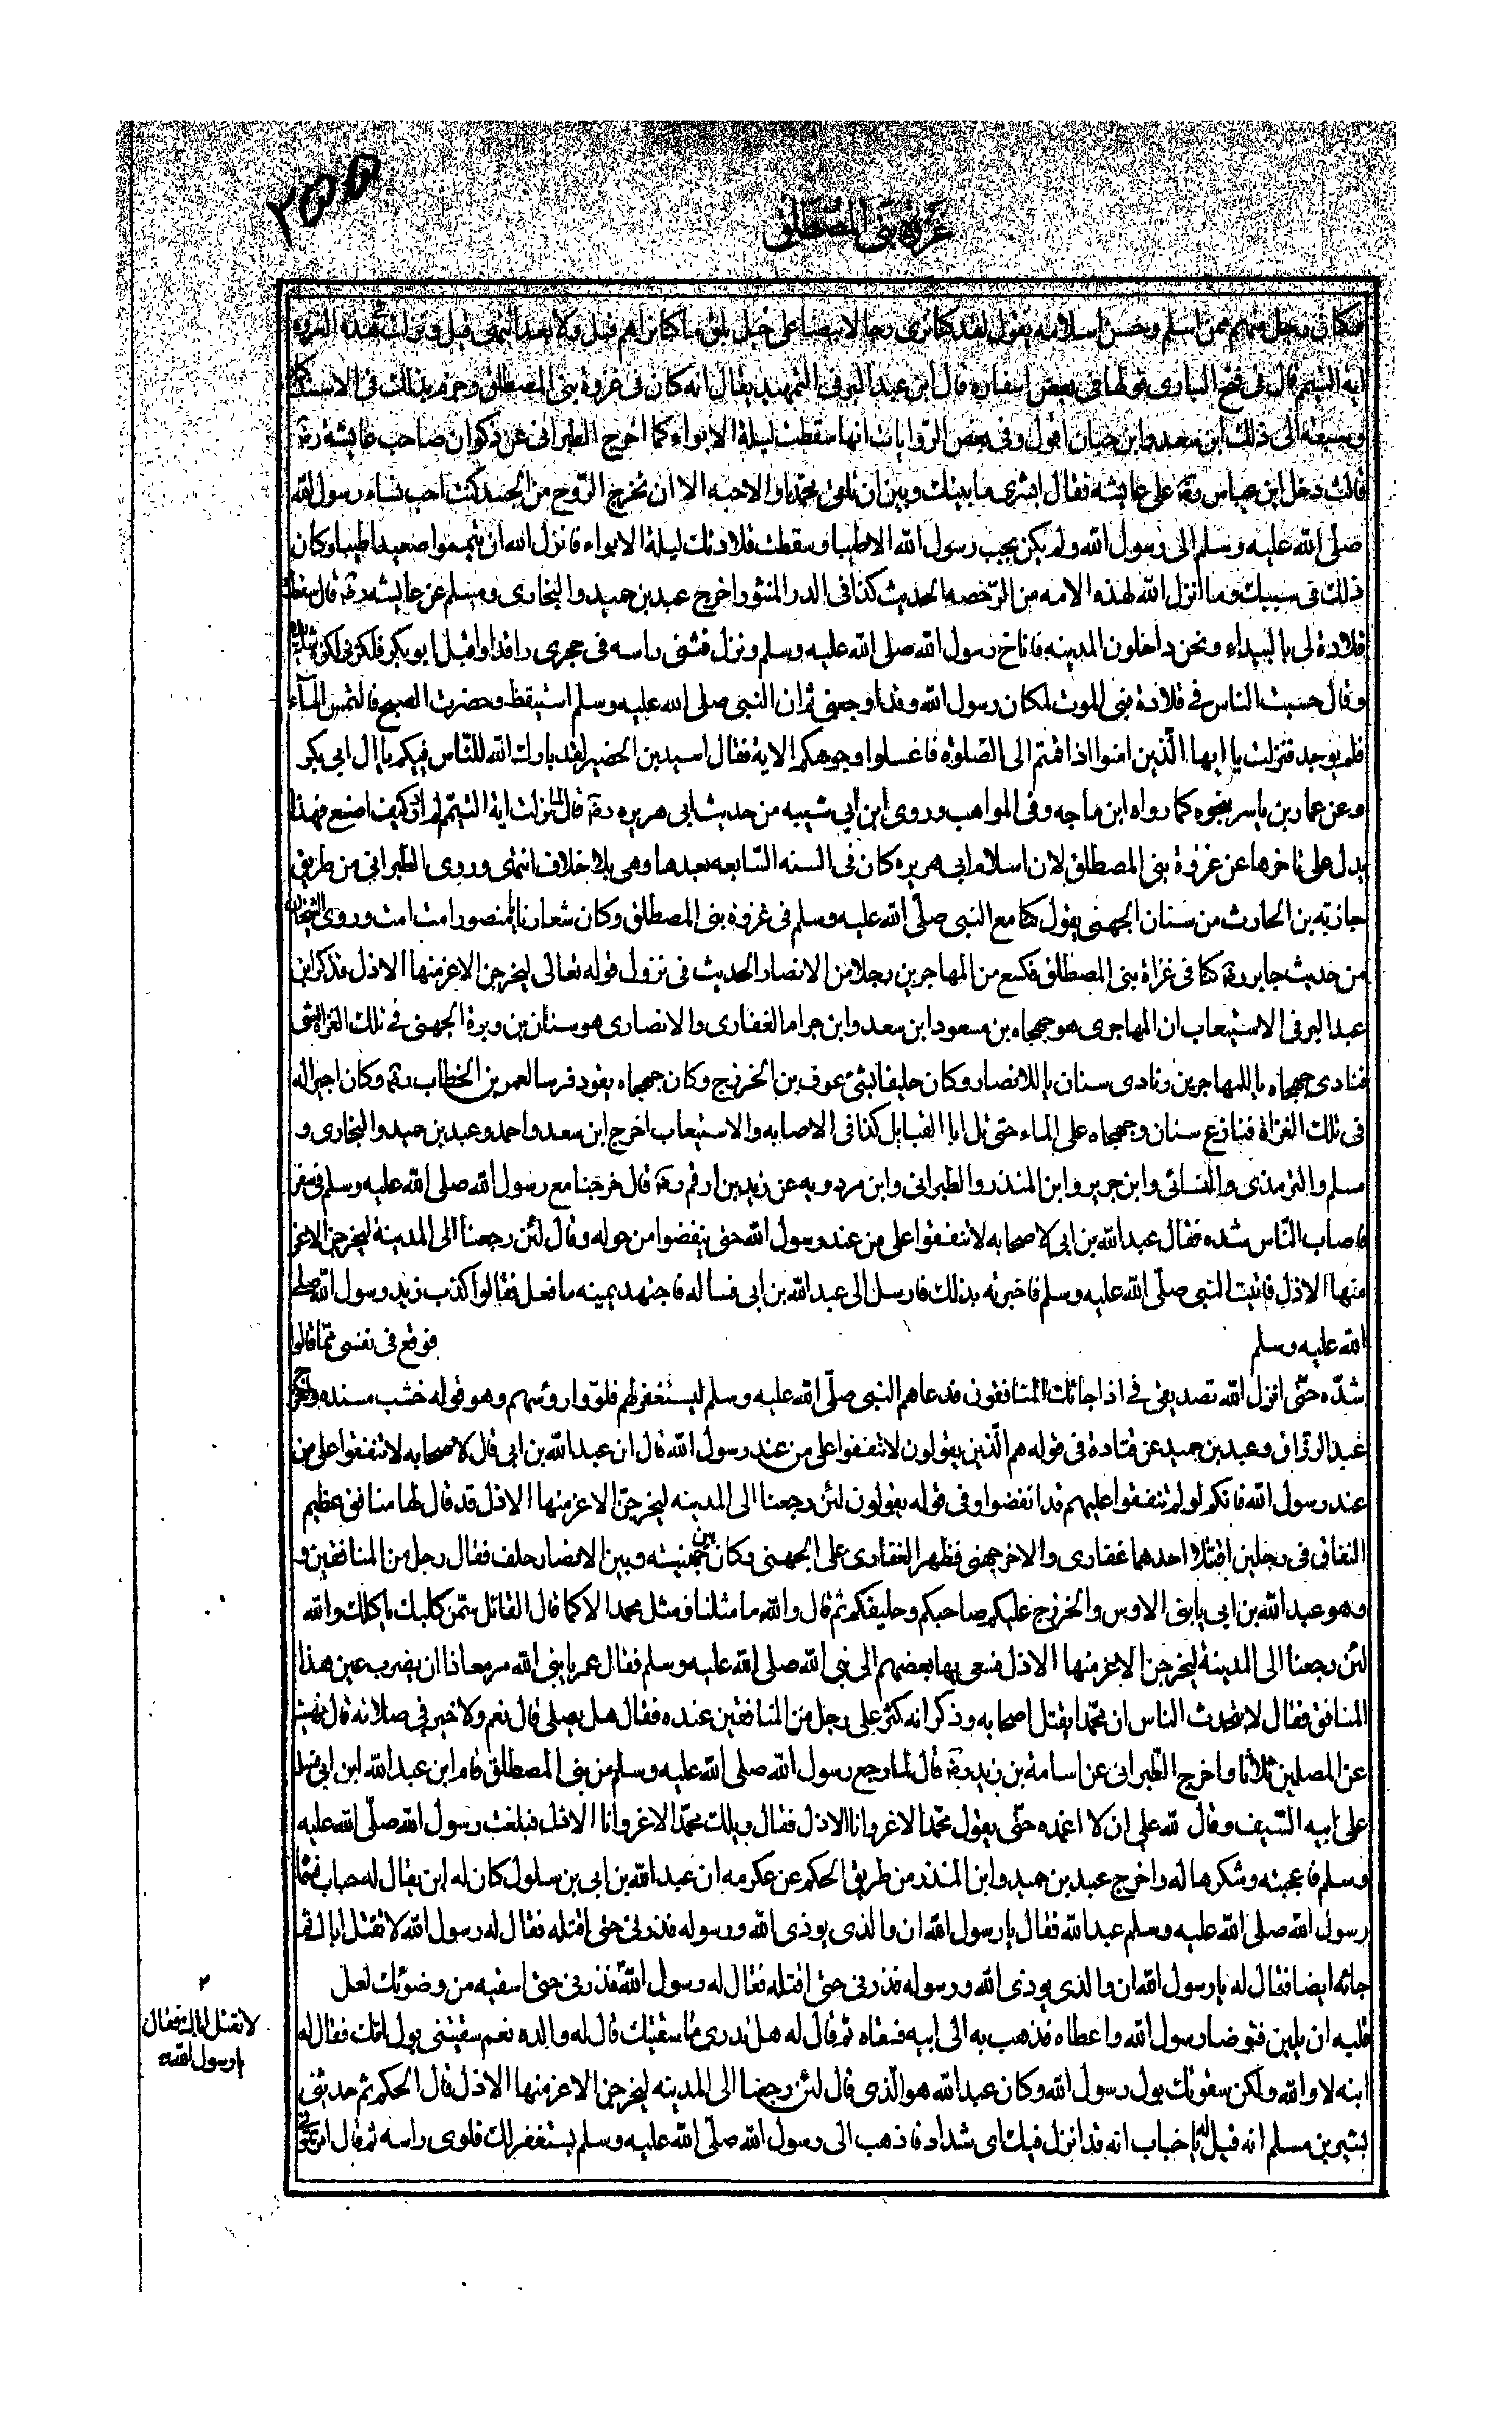 ٢٥٥
غزوة بنى المصطلق
فكان رجل منهم ممن اسلم وحسن اسلامه يقول لقد كنا نرى رجالا بيضا على خيل بلق ما كنا نراهم قبل ولا بعد انتهى قيل ونزلت فى هذه الغزوة
اية التيمم قال فى فتح البارى قولها فى بعض اسفاره قال ابن عبد البر فى التمهيد يقال انه كان فى غزوة بنى المصطلق وجزم بذلك فى الاستذكار
وسبقه الى ذلك ابن سعد وابن حبان اقول وفى بعض الروايات انها سقطت ليلة الابواء كما اخرج الطبرانى عن ذكوان صاحب عايشة رضه
قالت دخل ابن عباس رضه على عايشه فقال ابشرى ما بينك وبين ان تلقى محمدا والاحبه الا ان تخرج الرّوح من الجسد كنت احب نساء رسول الله
صلى الله عليه وسلم الى رسول الله ولم يكن يحب رسول الله الا طيبا وسقطت قلادتك ليلة الابواء فانزل الله ان تيمموا صعيدا طيبا وكان
ذلك فى سببك وما انزل الله لهذه الامه من الرّخصه الحديث كذا فى الدر المنثور اخرج عبد بن حميد والبخارى ومسلم عن عايشه رضه قال سقطت
قلادة لى بالبيداء ونحن داخلون المدينه فاناخ رسول الله صلى الله عليه وسلم ونزل فثنى راسه فى حجرى راقدا واقبل ابو بكر فلكزنى لكزة شديده
وقال حبست الناس فى قلادة فبى الموت لمكان رسول الله وقد اوجعنى ثم ان النبى صلى الله عليه وسلم استيقظ وحضرت الصبح فالتمس المآء
فلم يوجد فنزلت يا ايها الّذين امنوا اذا قمتم الى الصّلوة فاغسلوا وجوهكم الاية فقال اسيد بن الحضير لقد بارك الله للنّاس فيكم يا ال ابى بكر
وعن عمار بن ياسر نحوه كما رواه ابن ماجه وفى المواهب وروى ابن ابى شيبه من حديث ابى هريره رضه قال لما نزلت اية التيمّم لم ادر كيف اصنع فهذا
يدل على تاخرها عن غزوة بنى المصطلق لان اسلام ابى هريره كان فى السنه السّابعه بعدها وهى بلا خلاف انتهى وروى الطبرانى من طريق
جازيه بن الحارث من سنان الجهنى يقول كنا مع النبى صلّى الله عليه وسلم فى غزوة بنى المصطلق وكان شعارنا يا منصور امت امت وروى الشيخان
من حديث جابر رضه كنا فى غزاة بنى المصطلق فكسع من المهاجرين رجلا من الانصار الحديث فى نزول قوله تعالى ليخرجن الاعز منها الاذل فذكر ابن
عبد البر فى الاستيعاب ان المهاجرى هو جهجاه بن مسعود ابن سعد وابن حرام الغفارى والانصارى هو سنان بن وبرة الجهنى فى تلك الغزاة شى
فنادى جهجاه يا للمهاجرين ونادى سنان يا للانصار وكان حليفا لبنى عوف بن الخزرج وكان جهجاه يقود فرسا لعمر بن الخطاب رضه وكان اجيرا له
فى تلك الغزاة فتنازع سنان وجهجاه على الماء حتى تداعا القبايل كذا فى الاصابه والاستيعاب اخرج ابن سعد واحمد وعبد بن حميد والبخارى و
مسلم والترمذى والنسائى وابن جرير وابن المنذر والطبرانى وابن مردويه عن زيد بن ارقم رضه قال خرجنا مع رسول الله صلى الله عليه وسلم فى سفر
فاصاب النّاس شده فقال عبد الله بن ابى لاصحابه لا تنفقوا على من عند رسول الله حتى ينفضوا من حوله وقال لئن رجعنا الى المدينة ليخرجن الاعز
منها الاذل فاتيت النبى صلّى الله عليه وسلم فاخبرته بذلك فارسل الى عبد الله بن ابى فساله فاجتهد يمينه ما فعل فقالوا كذب زيد رسول الله صلى
الله عليه وسلم فوقع فى نفسى ممّا قالوا
شدّه حتّى انزل الله تصديقى فى اذا جائك المنافقون فدعاهم النبى صلّى الله عليه وسلم ليستغفر لهم فلوّوا رؤسهم وهو قوله خشب مسنده واخرج
عبد الرزاق وعبد بن حميد عن قتادة فى قوله هم الّذين يقولون لا تنفقوا على من عند رسول الله قال ان عبد الله بن ابى قال لاصحابه لا تنفقوا على من
عند رسول الله فانكم لو لم تنفقوا عليهم قد انفضوا وفى قوله يقولون لئن رجعنا الى المدينه ليخرجنّ الاعز منها الاذل قد قال لها منافق عظيم
النفاق فى رجلين اقتتلا احدهما غفارى والاخر جهنى فظهر الغفارى على الجهنى وكان بين جهنيته وبين الانصار حلف فقال رجل من المنافقين و
وهو عبد الله بن ابى يا بنى الاوس والخزرج عليكم صاحبكم وحليفكم ثم قال والله ما مثلنا ومثل محمد الا كما قال القائل سمّن كلبك ياكلك والله
لئن رجعنا الى المدينة ليخرجن الاعز منها الاذل فسعى بها بعضهم الى نبى الله صلى الله عليه وسلم فقال عمر يا نبى الله مر معاذا ان يضرب عنق هذا
المنافق فقال لا يتحدث الناس ان محمّدا يقتل اصحابه وذكر انه كثر على رجل من المنافقين عنده فقال هل يصلى قال نعم ولا خير فى صلاته قال نهيت
عن المصلين ثلاثا واخرج الطّبرانى عن اسامة بن زيد رضه قال لما رجع رسول الله صلى الله عليه وسلم من بنى المصطلق قام ابن عبد الله ابن ابى فسل
على ابيه السّيف وقال لله على ان لا اغمده حتّى يقول محمّد الاعز وانا الاذل فقال ويلك محمّد الاعز وانا الاذل فبلغت رسول الله صلّى الله عليه
وسلم فاعجبته وشكرها له واخرج عبد بن حميد وابن المنذر من طريق الحكم عن عكرمه ان عبد الله بن ابى بن سلول كان له ابن يقال له حباب فسمّا
رسول الله صلى الله عليه وسلم عبد الله فقال يا رسول الله ان والدى يوذى الله ورسوله فذرنى حتى اقتله فقال له رسول الله لا تقتل اباك ثم
جائه ايضا فقال له يا رسول الله ان والدى يوذى الله ورسوله فذرنى حتى اقتله فقال له رسول الله فذرنى حتى اسقيه من وضوئك لعل
قلبه ان يلين فتوضا رسول الله واعطاه فذهب به الى ابيه فسقاه ثم قال له هل تدرى ما سقيتك قال له والده نعم سقيتنى بول امك فقال له
ابنه لا والله ولكن سقوتك بول رسول الله وكان عبد الله هو الّذى قال لئن رجعنا الى المدينه ليخرجن الاعز منها الاذل قال الحكم ثم حدثنى
بشير بن مسلم انه قيل له يا حباب انه قد انزل فيك اى شداد فاذهب الى رسول الله صلّى الله عليه وسلم يستغفر لك فلوى راسه ثم قال امرتمونى
٢
لا تقتل اباك فقال
يا رسول الله